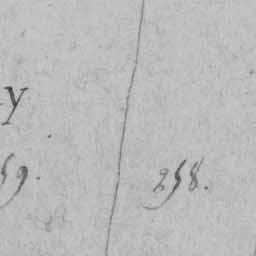 y
59.
258.